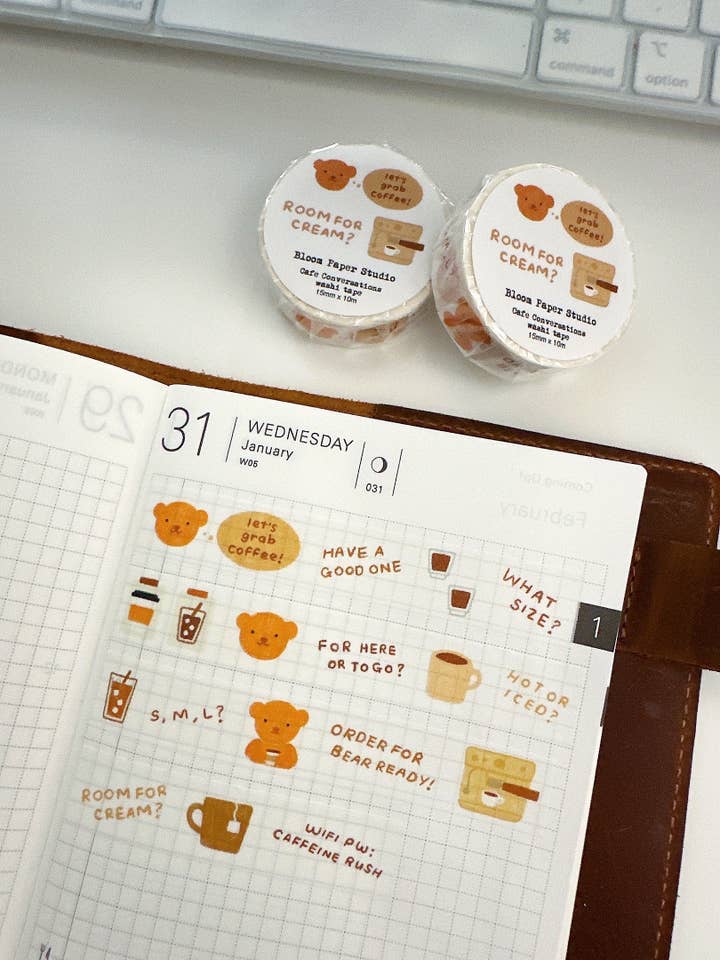 command
⌘
command
⌥
option
let's
grab
coffee!
ROOM FOR
CREAM?
Bloom Paper Studio
Cafe Conversations
washi tape
15mm x 10m
let's
grab
coffee!
ROOM FOR
CREAM?
Bloom Paper Studio
Cafe Conversations
washi tape
15mm x 10m
29
MOND
January
W05
31
WEDNESDAY
January
W05
031
Coming Up!
February
let's
grab
coffee!
HAVE A
GOOD ONE
WHAT
SIZE?
1
FOR HERE
OR TO GO?
HOT OR
ICED?
S, M, L?
ORDER FOR
BEAR READY!
ROOM FOR
CREAM?
WIFI PW:
CAFFEINE RUSH